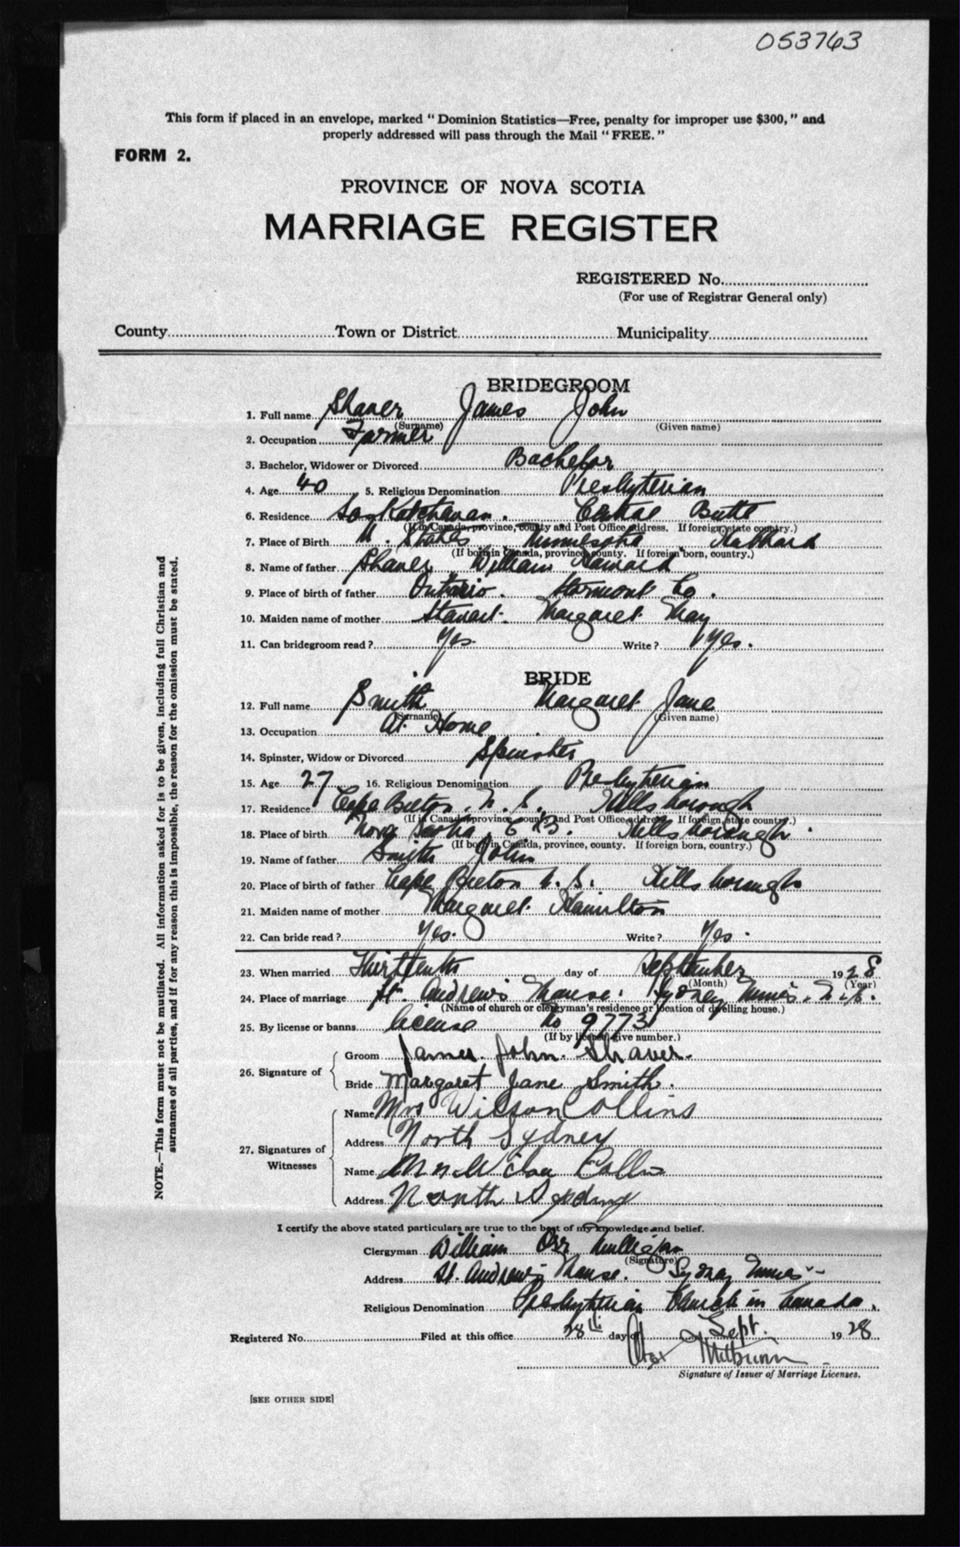 053763
This form if placed in an envelope, marked "Dominion Statistics—Free, penalty for improper use $300," and
properly addressed will pass through the Mail "FREE."
FORM 2.
PROVINCE OF NOVA SCOTIA
MARRIAGE REGISTER
REGISTERED No.
(For use of Registrar General only)
County Town or District Municipality
BRIDEGROOM
1. Full name Shaver James John
(Surname) (Given name)
2. Occupation Farmer
3. Bachelor, Widower or Divorced Bachelor
4. Age 40 5. Religious Denomination Presbyterian
6. Residence Saskatchewan. Butte
(If in Canada, province, county and Post Office address. If foreign, state country.)
7. Place of Birth U. States Minnesota
(If born in Canada, province, county. If foreign born, country.)
8. Name of father Shaver William
9. Place of birth of father Ontario. Stormont Co.
10. Maiden name of mother Margaret May
11. Can bridegroom read? Yes Write? Yes.
BRIDE
12. Full name Smith Margaret Jane
(Surname) (Given name)
13. Occupation At Home
14. Spinster, Widow or Divorced Spinster
15. Age 27 16. Religious Denomination Presbyterian
17. Residence Cape Breton, N. S. Hillsborough
(If in Canada, province, county and Post Office address. If foreign, state country.)
18. Place of birth Nova Scotia, C B. Hillsborough.
(If born in Canada, province, county. If foreign born, country.)
19. Name of father Smith John
20. Place of birth of father Cape Breton N. S. Hillsborough
21. Maiden name of mother Margaret Hamilton
22. Can bride read? Yes. Write? Yes.
23. When married Thirteenth day of September 1928
(Month) (Year)
24. Place of marriage St. Andrew's Manse. Sydney Mines. N. S.
(Name of church or clergyman's residence or location of dwelling house.)
25. By license or banns license No 9773
(If by license, give number.)
26. Signature of
Groom James John Shaver.
Bride Margaret Jane Smith.
27. Signatures of Witnesses
Name Mrs Wilson Collins
Address North Sydney
Name
Address North Sydney
I certify the above stated particulars are true to the best of my knowledge and belief.
Clergyman William Orr Mulligan
(Signature)
Address St. Andrew's Manse. Sydney Mines
Religious Denomination Presbyterian Church in Canada.
Registered No. Filed at this office 28th day of Sept. 1928
Signature of Issuer of Marriage Licenses.
[SEE OTHER SIDE]
NOTE.—This form must not be mutilated. All information asked for is to be given, including full Christian and
surnames of all parties, and if for any reason this is impossible, the reason for the omission must be stated.